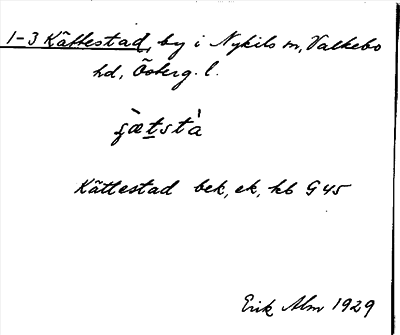 1-3 Kättestad, by i Nykils sn, Valkebo
hd, Österg. l.
Kättestad bek, ek, hb G45
Erik Alm 1929